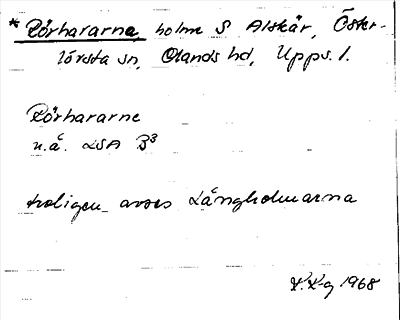 * Rörhararna, holme S Alskär, Öster-
lövsta sn, Olands hd, Upps. l.
Rörhararne
u.å. LSA B3
troligen avses Långholmarna
1968